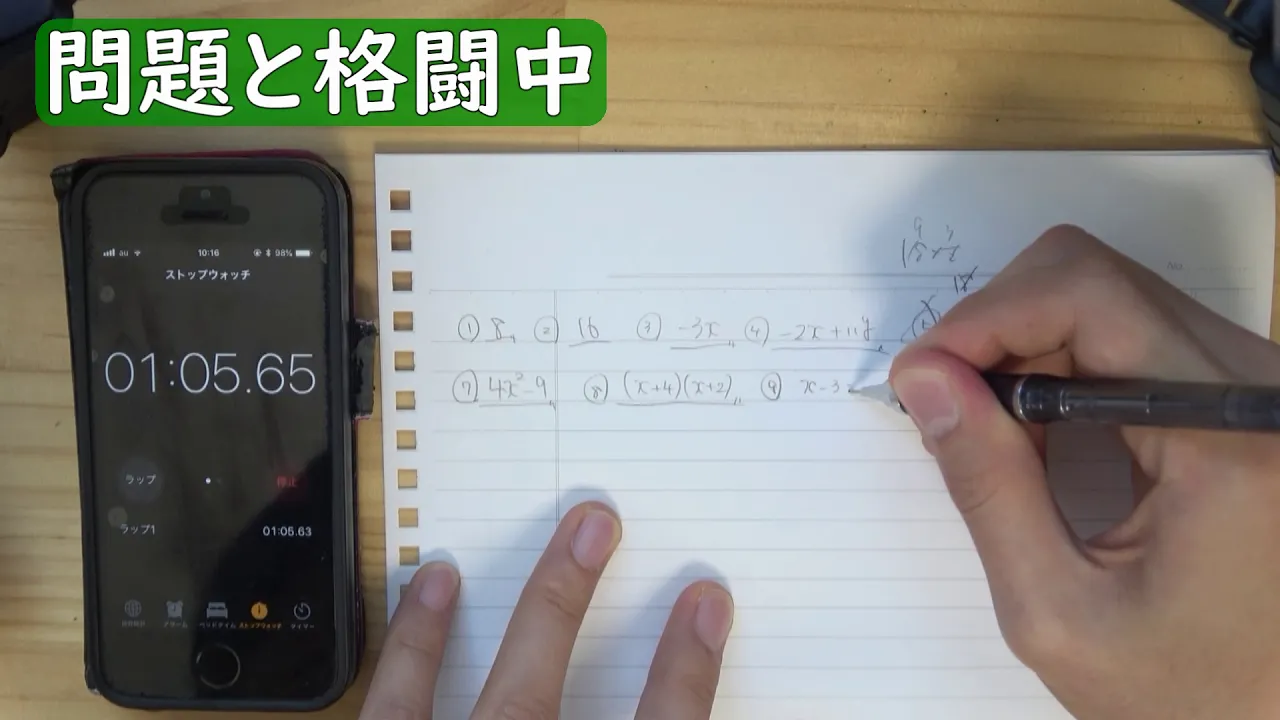 問題と格闘中
au 10:16 98%
ストップウォッチ
01:05.65
ラップ 停止
ラップ1 01:05.63
世界時計 アラーム ベッドタイム ストップウォッチ タイマー
No.
① 8 ② 16 ③ -3x ④ -2x+11y
⑦ 4x²-9 ⑧ (x+4)(x+2) ⑨ x-3